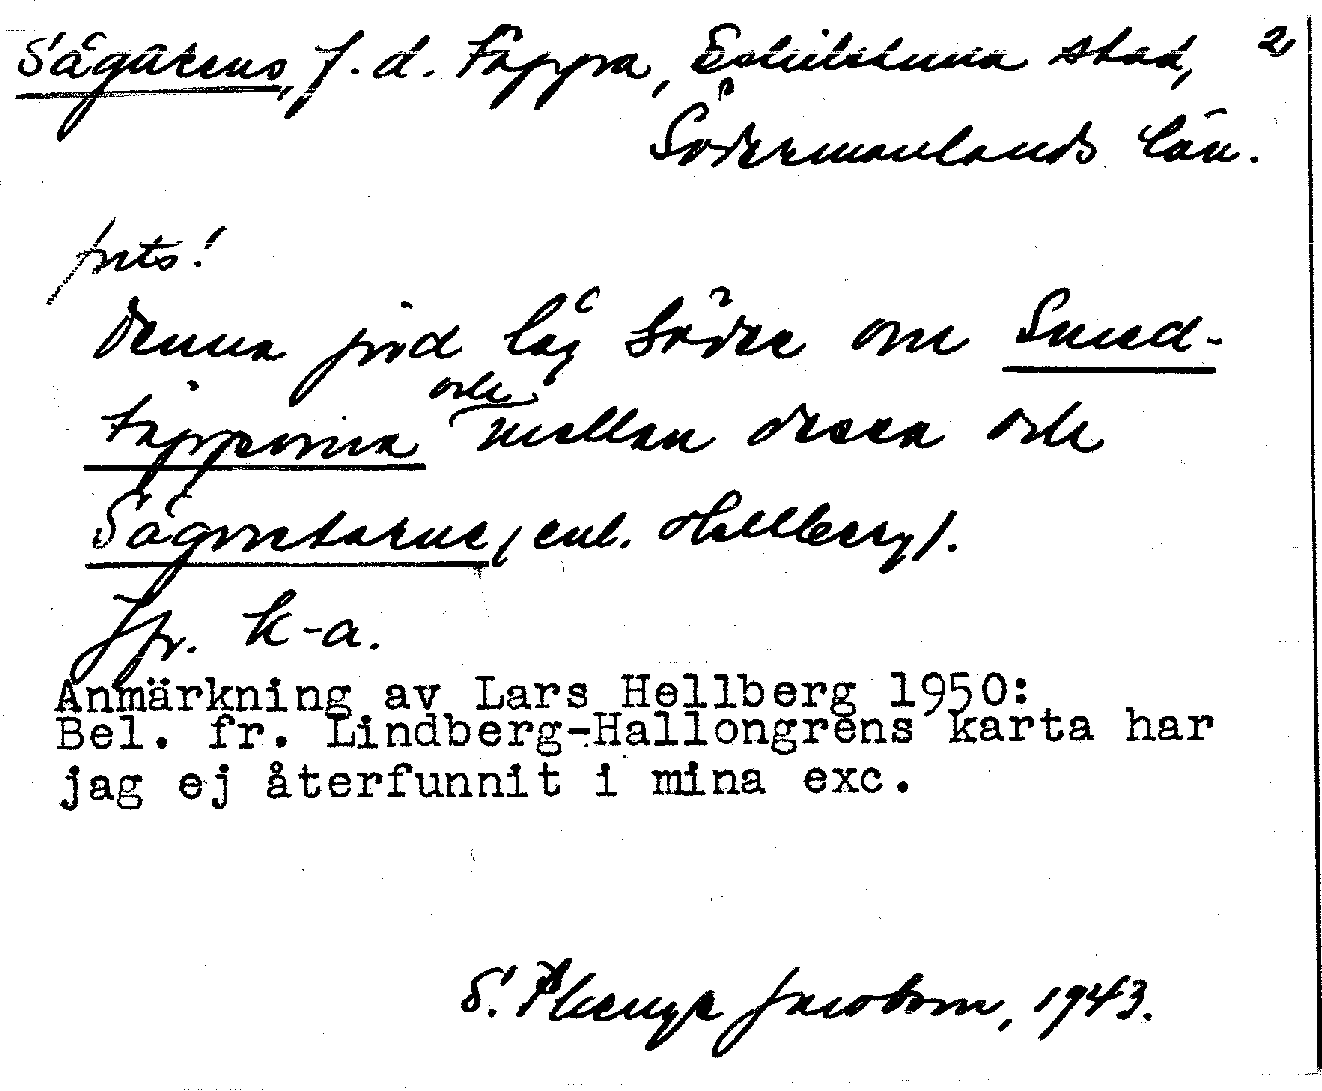 Sågarens, f.d. täppa, Eskilstuna stad, 2
Södermanlands län.
forts!
Denna jord låg söder om Smed-
och
täpporna mellan dessa och
Sågmotarne (enl. Hellberg).
Jfr. k-a.
Anmärkning av Lars Hellberg 1950:
Bel. fr. Lindberg-Hallongrens karta har
jag ej återfunnit i mina exc.
S. Jacobson, 1943.